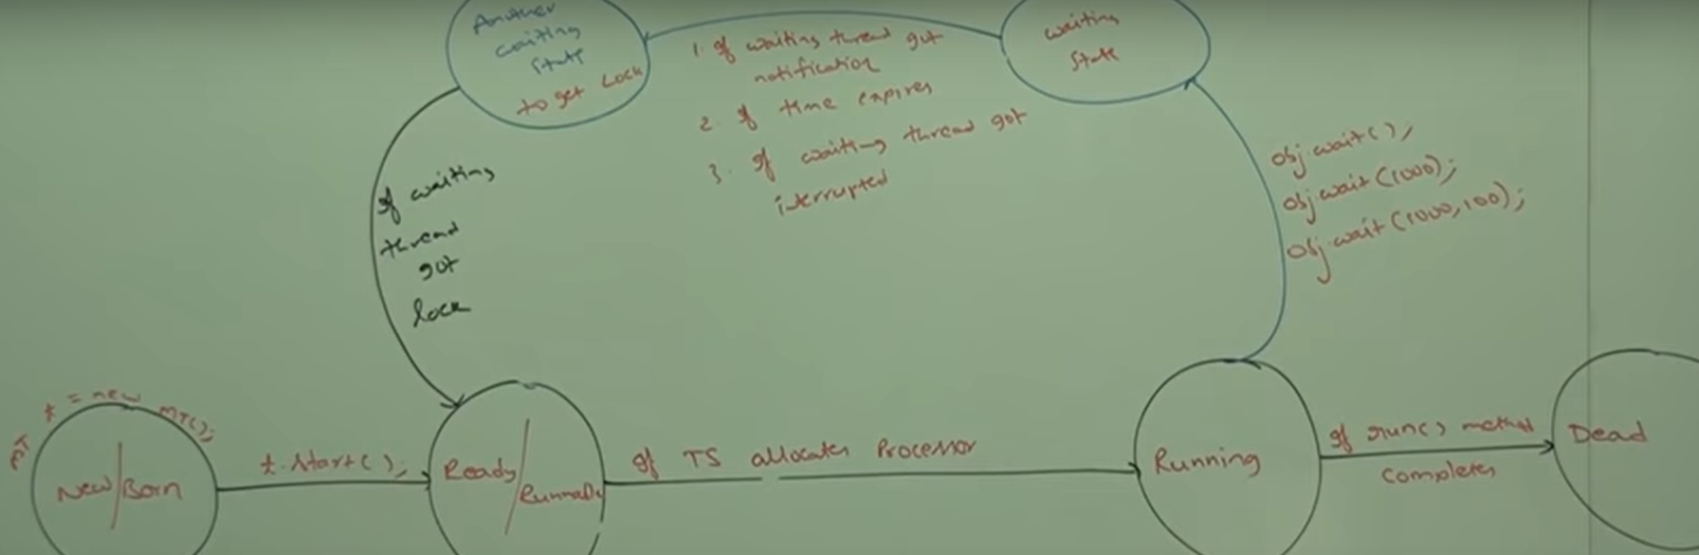 Another
waiting
State
to get Lock
1. If waiting thread got
notification
2. If time expires
3. If waiting thread got
iterrupted
waiting
State
obj.wait();
obj.wait(1000);
obj.wait(1000,100);
If waiting
thread
got
lock
MT t = new MT();
New/Born
t.start();
Ready/
Runnable
If TS allocates Processor
Running
If run() method
Completes
Dead